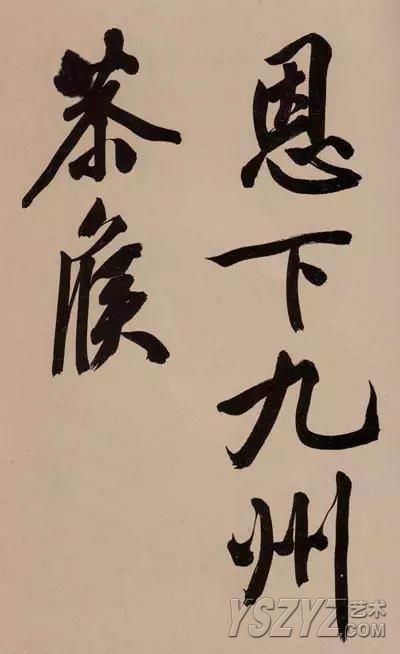 恩下九州
茶
YSZYZ艺术.COM